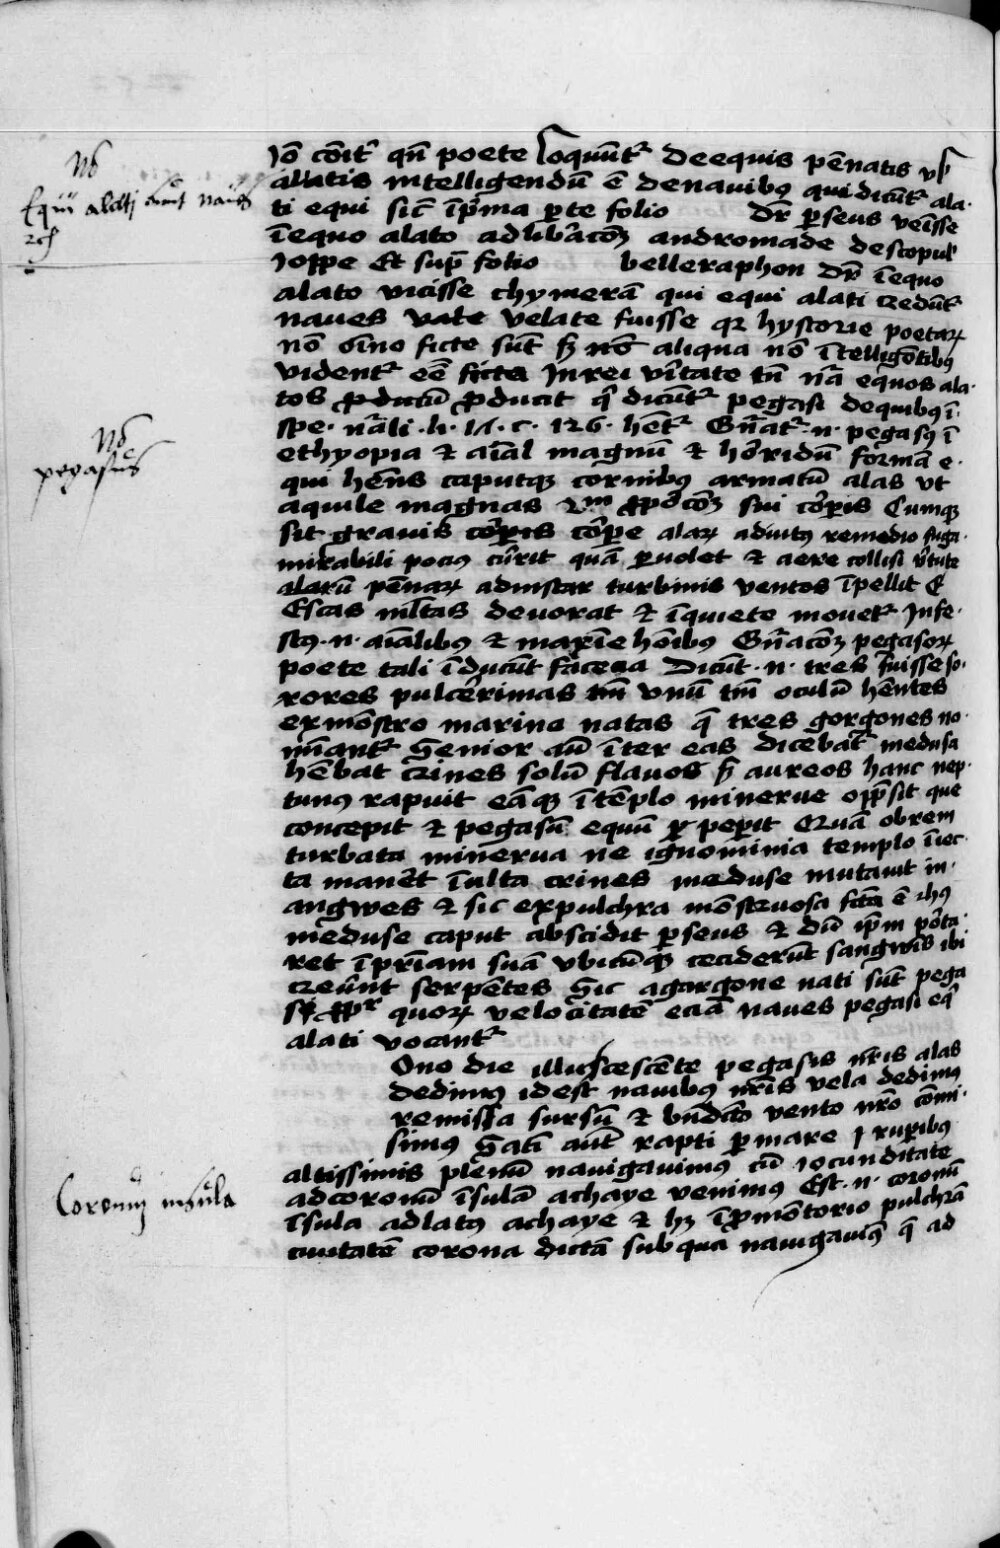 Nō
Equi alati sunt naues
2c
Iō cōiť qn̄ poete loquūtᷣ de equis pēnatis vl̓
allatis intelligendū ē de nauibꝰ qui dicūtᷣ ala-
ti equi sic̄ ī prima ꝑte folio dr̄ perseus veīsse
ī equo alato ad libᷣacōꝫ andromade de scopul̓
Ioppe Et sup̄ folio belleraphon dr̄ ī equo
alato vicisse chymerā qui equi alati credūtᷣ
naues vate velate fuisse qꝛ hystorie poetaꝝ
nō oīno ficte sūt sꝫ nō aliqua nō ītelligētibꝰ
videntᷣ eē ficta In rei vᷣitate tn̄ nr̄a equos ala-
tos ꝓductū ꝓducit q̄ dicūtᷣ pegasi de quibꝰ ī
spe. nr̄ali .li. c. 126. hētᷣ Gn̄atᷣ .n. pegasꝰ ī
ethyopia ⁊ aīal magnū ⁊ horridū formā e-
qui hēns caputqꝫ cornibꝰ armatū alas vt
aquile magnas ꝓporcōꝫ sui corꝑis Cumqꝫ
sit grauis corꝑis corꝑe alaꝝ adiutꝰ remedio fuga
mirabili pociꝰ currit quā ꝑuolet ⁊ aere collisi vᷣtute
alarū pēnaꝝ ad instar turbinis ventos īpellit Et
Escas ml̓tas deuorat ⁊ īquiete mouetᷣ Infe-
stꝰ .n. aīalibꝰ ⁊ maxīe hōībꝰ Gn̄acōꝫ pegasoꝝ
poete tali īducūt facena Dicūt .n. tres fuisse so-
rores pulcerimas tm̄ vnū tm̄ oculū hentes
ex mōstro marino natas q̄ tres gorgones no-
mīantᷣ Senior aū īter eas dicebatᷣ medusa
hēbat crines solū flauos sꝫ aureos hanc nep-
tunꝰ rapuit eāqꝫ ī tēplo minerue opp̄sit que
concepit ⁊ pegasū equū peꝑit Quā ob rem
turbata minerua ne ignominia templo īiec-
ta manet īulta crines meduse mutauit in
angwes ⁊ sic ex pulchra mōstruosa fcā ē hꝰ
meduse caput abscidit perseus ⁊ dū ip̄m porta-
ret ī pr̄iam suā vbicūqꝫ ceciderūt sangwīs ibi
creuūt serpētes Sic a gorgone nati sūt pega
si ꝓpᷣ quoꝝ velocitatē eciā naues pegasi eq̄
alati vocantᷣ
Vno die illucescēte pegasis nr̄is alas
dedimꝰ id est nauibꝰ nr̄is vela dedimꝰ
remissa sursū ⁊ bn̄dcō vento nr̄o cōmi-
simꝰ Sati aūt rapti ꝑ mare ⁊ rupibꝰ
altissimis plenū nauigauimꝰ cū iocunditate
ad coronū īsulā achaye venimꝰ Est .n. coronū
īsula ad latꝰ achaye ⁊ hꝫ ī ꝓmōtorio pulchrā
ciuitatē corona dictā sub qua nauigauimꝰ q̄ ad
Nō
pegasus
Coronū insula